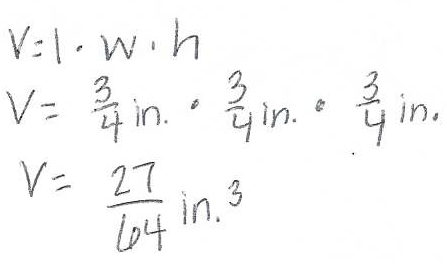 V=l·w·h
V= 3/4 in. · 3/4 in. · 3/4 in.
V= 27/64 in.³